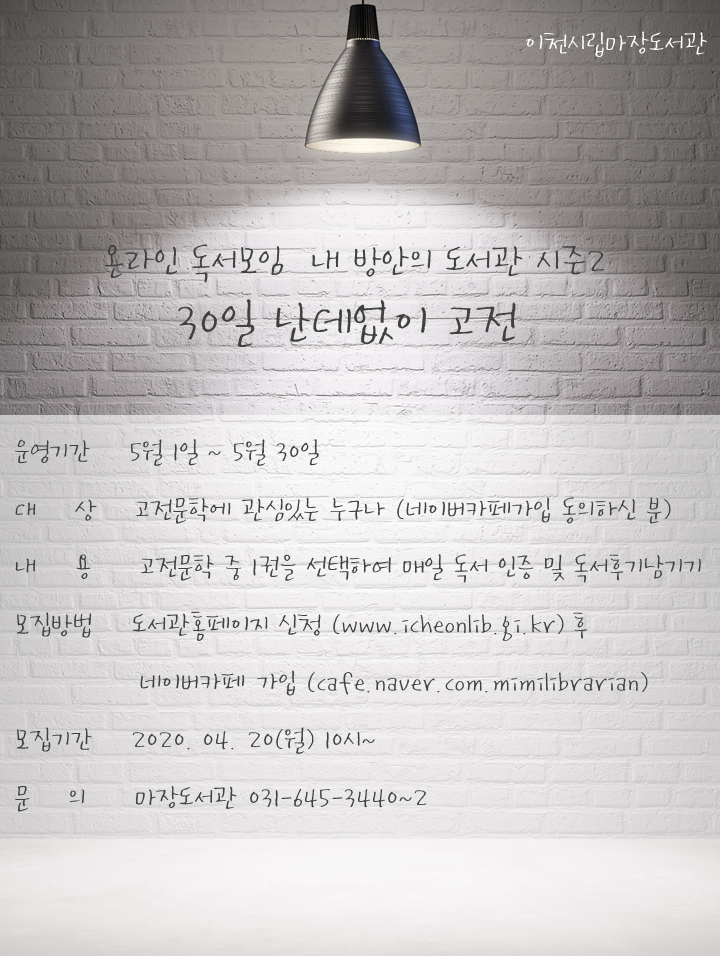 이천시립마장도서관
온라인 독서모임 내 방안의 도서관 시즌2
30일 난데없이 고전
운영기간 5월 1일 ~ 5월 30일
대 상 고전문학에 관심있는 누구나 (네이버카페가입 동의하신 분)
내 용 고전문학 중 1권을 선택하여 매일 독서 인증 및 독서후기남기기
모집방법 도서관홈페이지 신청 (www.icheonlib.gi.kr) 후
네이버카페 가입 (cafe.naver.com.mimilibrarian)
모집기간 2020. 04. 20(월) 10시~
문 의 마장도서관 031-645-3440~2